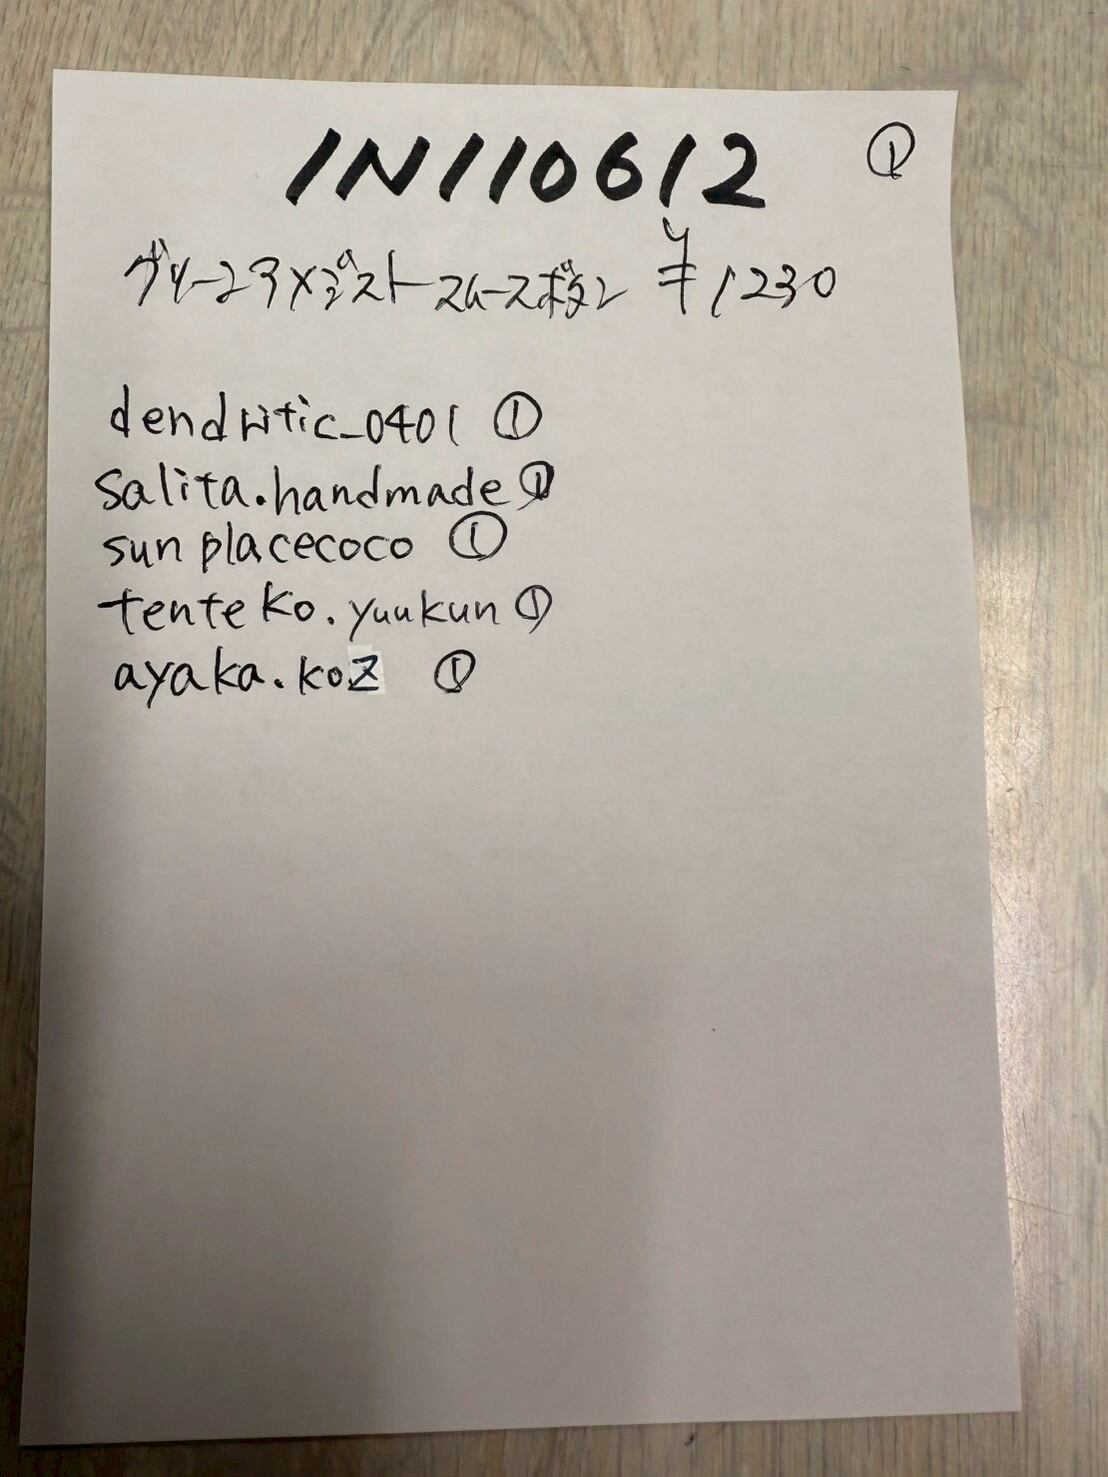 IN110612 ①
グリーンアメジストースムースボタン ¥1230
dendritic_0401 ①
salita.handmade ①
sunplacecoco ①
tenteko.yuukun ①
ayaka.koz ①